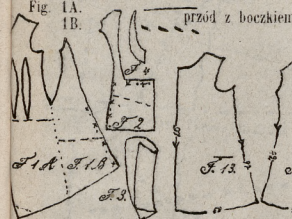 Fig. 1A.
1B.
przód z boczkiem
F. 4
F. 1 A
F. 1. B
F. 2
F. 3.
F. 13.